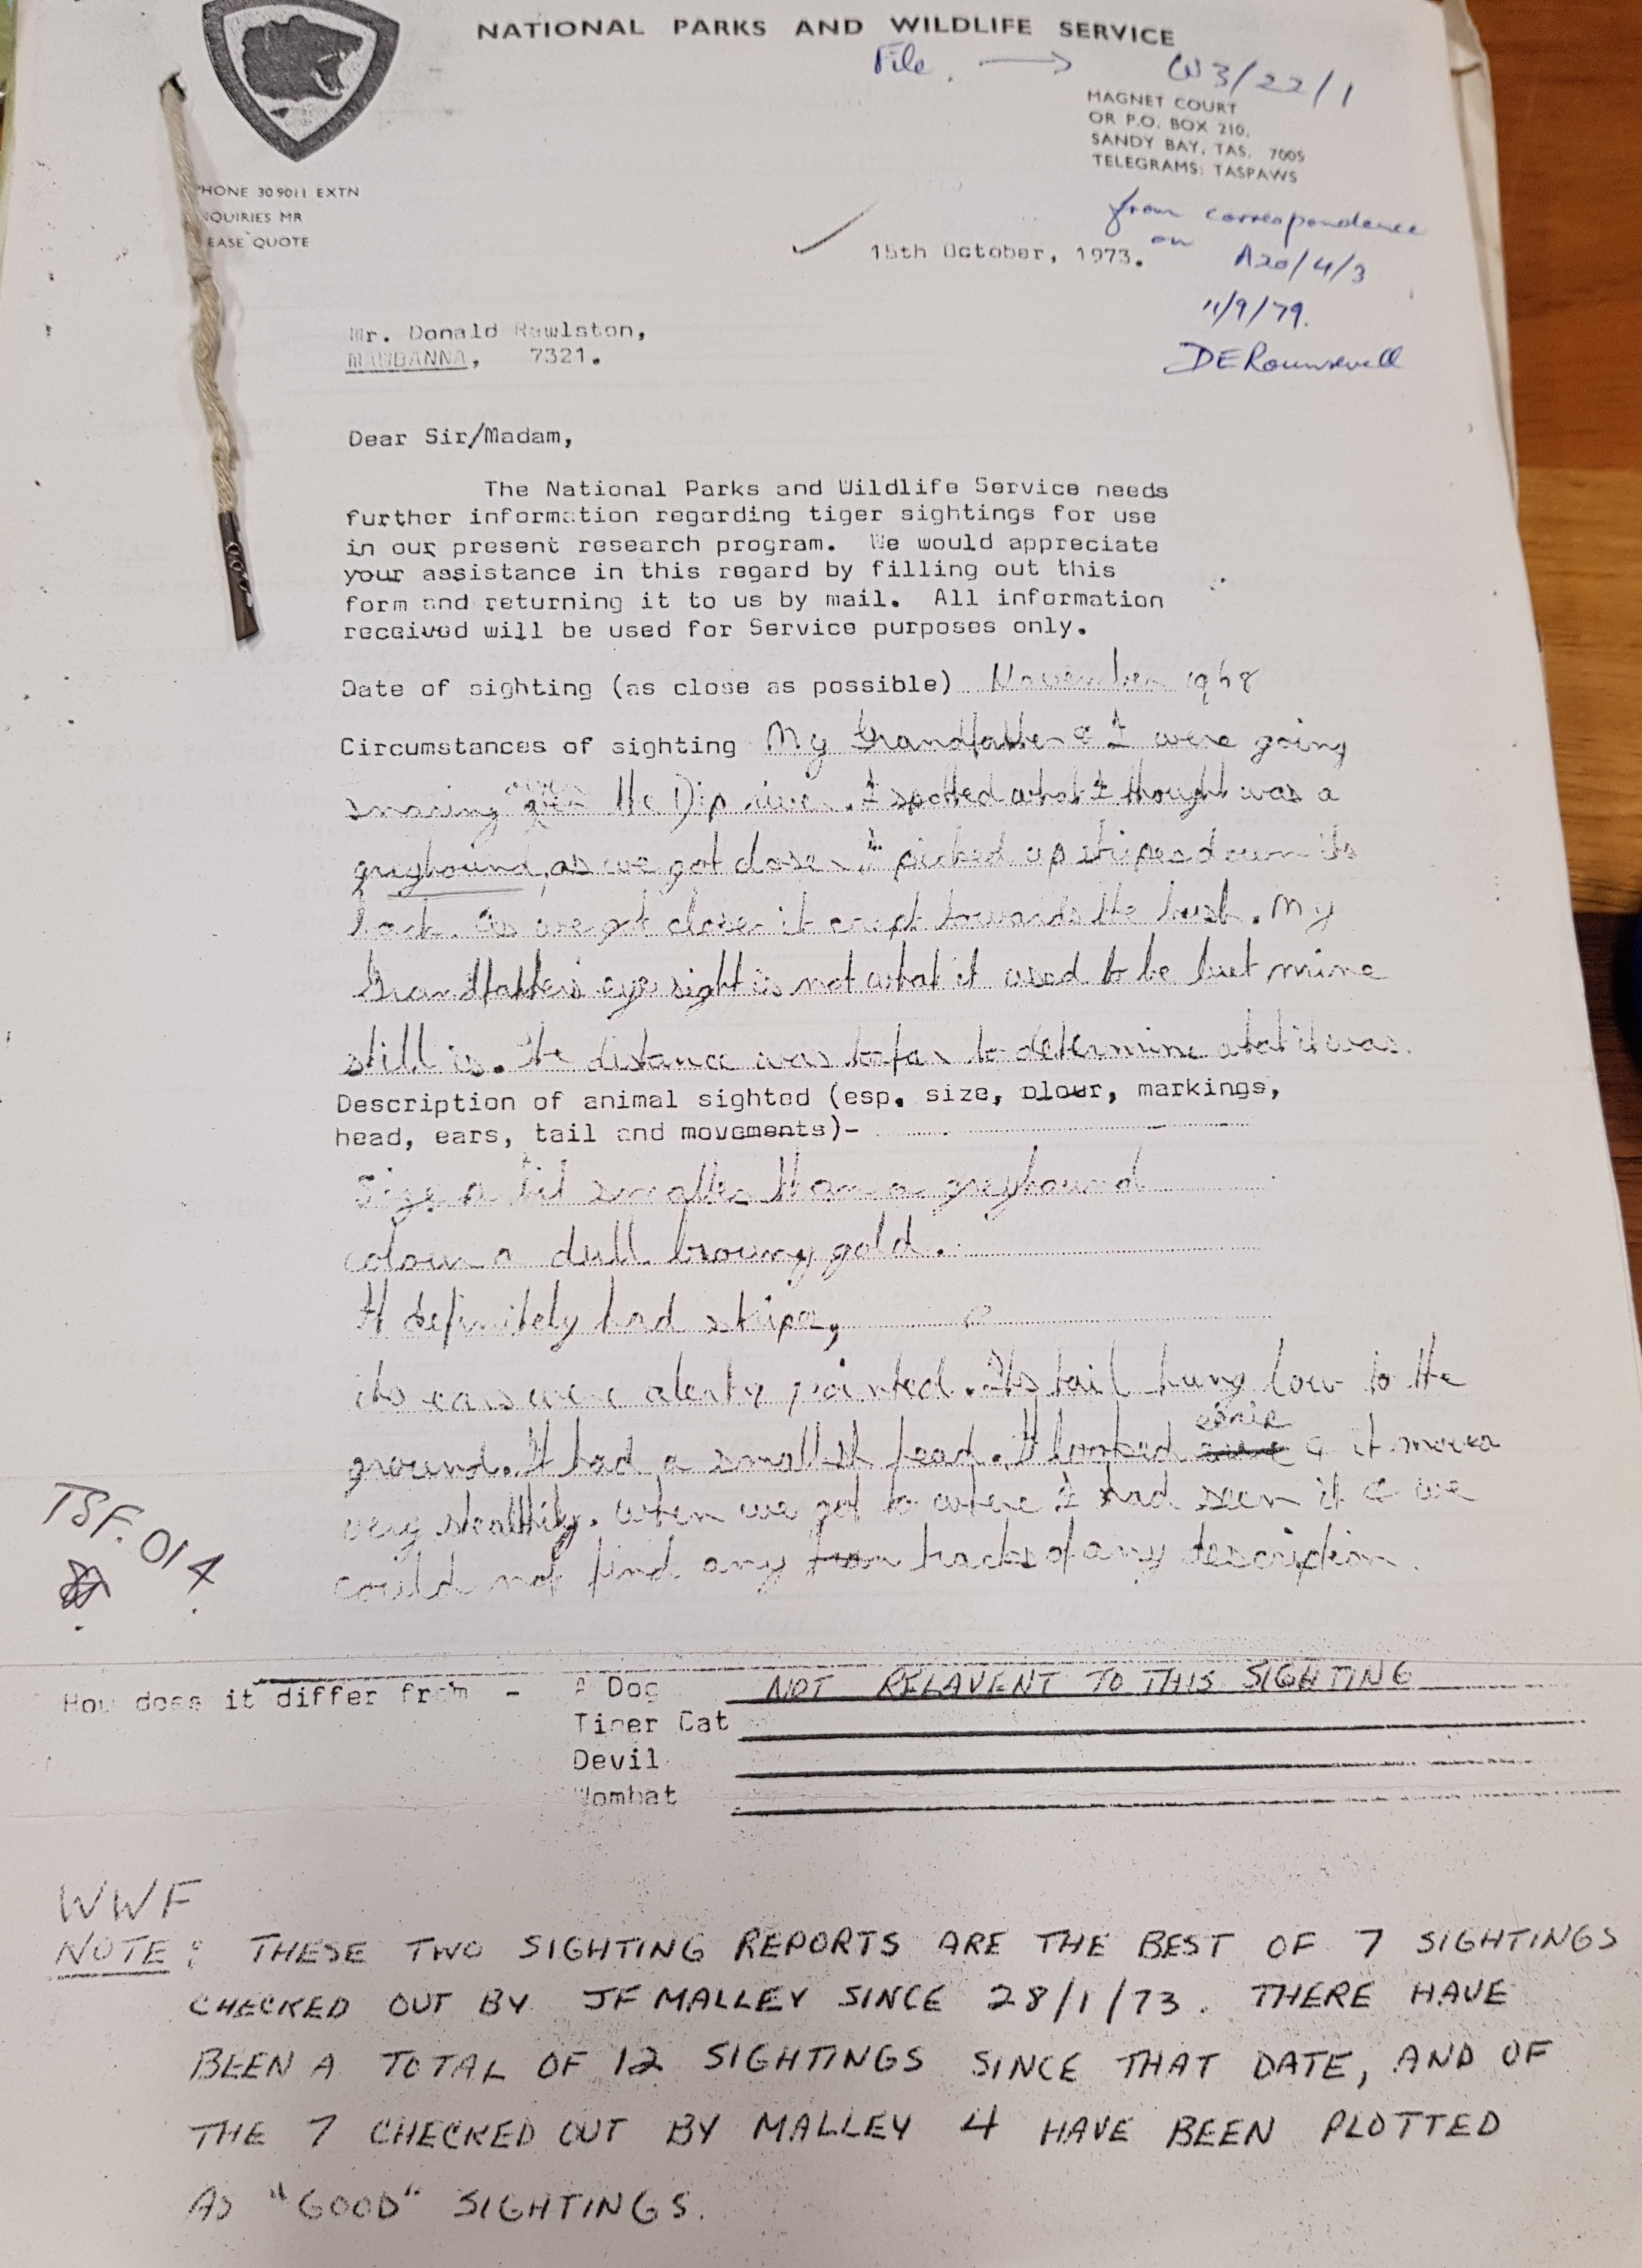 NATIONAL PARKS AND WILDLIFE SERVICE
File. → W3/22/1
MAGNET COURT
OR P.O. BOX 210,
SANDY BAY, TAS. 7005
TELEGRAMS: TASPAWS
HONE 309011 EXTN
QUIRIES MR
EASE QUOTE
from correspondence
on A20/4/3
11/9/79.
DERounsevell
15th October, 1973.
Mr. Donald Rawlston,
MAWBANNA, 7321.
Dear Sir/Madam,
The National Parks and Wildlife Service needs
further information regarding tiger sightings for use
in our present research program. We would appreciate
your assistance in this regard by filling out this
form and returning it to us by mail. All information
received will be used for Service purposes only.
Date of sighting (as close as possible) November 1968
Circumstances of sighting My Grandfather & I were going
snaring over the Dip river. I spotted what I thought was a
greyhound, as we got closer I picked up stripes down its
back. As we got closer it crept towards the bush. My
Grandfathers eye sight is not what it used to be but mine
still is. The distance was to far to determine what it was.
Description of animal sighted (esp. size, olour, markings,
head, ears, tail and movements)-
Size a bit smaller than a greyhound
colour a dull browny gold.
It definitely had stripes,
its ears were alert & pointed. Its tail hung low to the
ground. It had a smallish head. It looked eerie & it moved
very stealthily. When we got to where I had seen it & we
could not find any tracks of any description.
TSF. 014
How does it differ from - A Dog NOT RELAVENT TO THIS SIGHTING
Tiger Cat
Devil
Wombat
WWF
NOTE: THESE TWO SIGHTING REPORTS ARE THE BEST OF 7 SIGHTINGS
CHECKED OUT BY JF MALLEY SINCE 28/1/73. THERE HAVE
BEEN A TOTAL OF 12 SIGHTINGS SINCE THAT DATE, AND OF
THE 7 CHECKED OUT BY MALLEY 4 HAVE BEEN PLOTTED
AS "GOOD" SIGHTINGS.